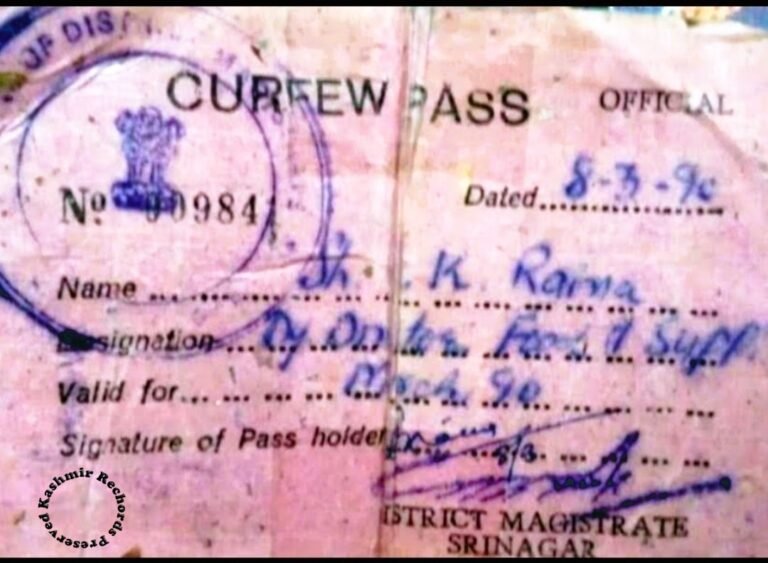 OF DIS
CURFEW PASS OFFICIAL
No 00984 Dated 8-3-90
Name Sh. K. Raina
Designation Dy Food & Supp
Valid for March 90
Signature of Pass holder
DISTRICT MAGISTRATE
SRINAGAR
Kashmir Rechords Preserved